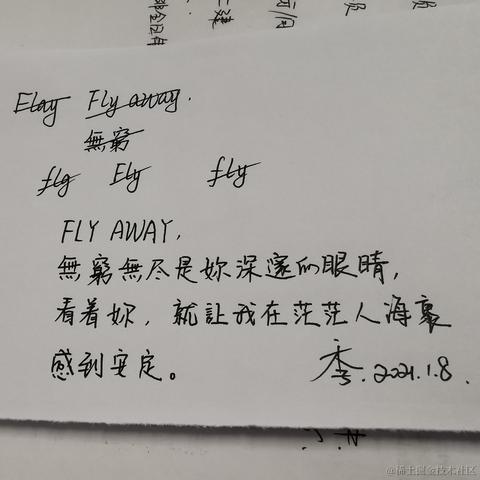 Elay Fly away.
無窮
fly Fly fly
FLY AWAY,
無窮無尽是妳深邃的眼睛,
看着妳，就讓我在茫茫人海裏
感到安定。
季.2021.1.8.
@稀土掘金技术社区